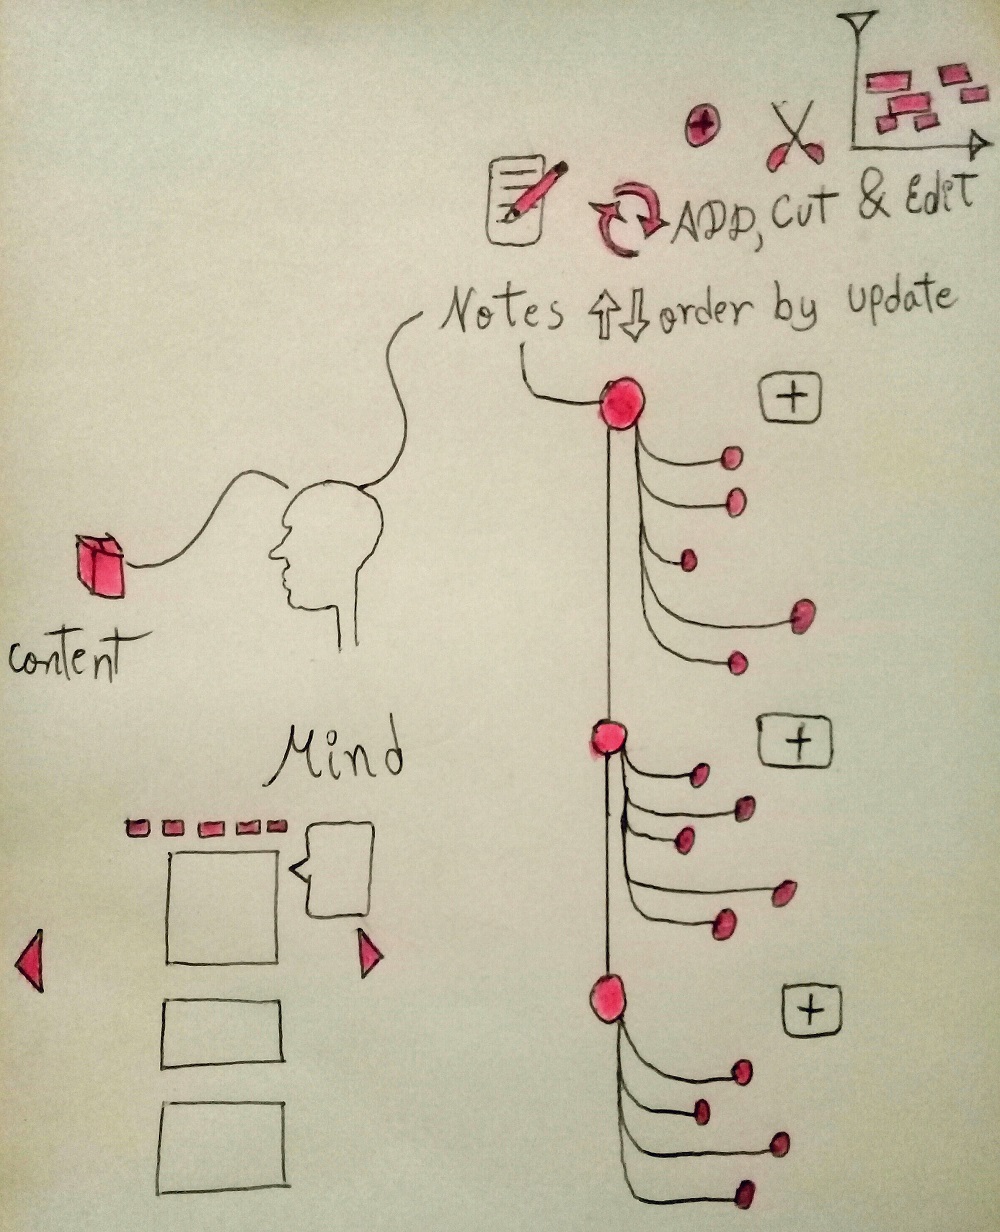 ADD, Cut & Edit
Notes ⇧⇩ order by update
+
content
+
Mind
+